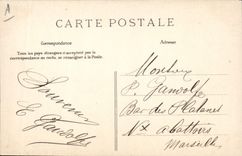 A
CARTE POSTALE
Correspondance
Adresse
Tous les pays étrangers n'acceptent pas la
correspondance au recto, se renseigner à la Poste
Souvenir
E Gandolfe
Monsieur
P. Gandolfe
Bar des Platanes
Nx abattoirs
Marseille